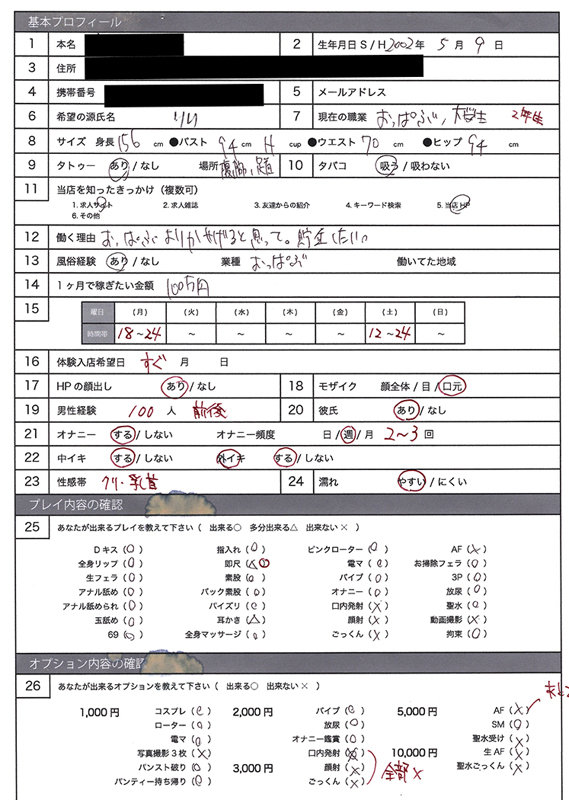 基本プロフィール
1 本名 2 生年月日 S / H 2002年 5月 9日
3 住所
4 携帯番号 5 メールアドレス
6 希望の源氏名 りり 7 現在の職業 おっぱぶ、大学生 2年生
8 サイズ 身長 156 cm ●バスト 94 cm H cup ●ウエスト 70 cm ●ヒップ 94 cm
9 タトゥー あり / なし 場所 10 タバコ 吸う / 吸わない
11 当店を知ったきっかけ(複数可)
1. 求人サイト 2. 求人雑誌 3. 友達からの紹介 4. キーワード検索 5. 当店HP
6. その他
12 働く理由 おっぱぶよりかせげると思って。貯金したい。
13 風俗経験 あり / なし 業種 おっぱぶ 働いてた地域
14 1ヶ月で稼ぎたい金額 100万円
15 曜日 (月) (火) (水) (木) (金) (土) (日)
時間帯 18~24 ~ ~ ~ ~ 12~24 ~
16 体験入店希望日 すぐ 月 日
17 HPの顔出し あり / なし 18 モザイク 顔全体 / 目 / 口元
19 男性経験 100 人 前後 20 彼氏 あり / なし
21 オナニー する / しない オナニー頻度 日 / 週 / 月 2~3 回
22 中イキ する / しない 外イキ する / しない
23 性感帯 クリ・乳首 24 濡れ やすい / にくい
プレイ内容の確認
25 あなたが出来るプレイを教えて下さい( 出来る○ 多分出来る△ 出来ない× )
Dキス (○) 指入れ (○) ピンクローター (○) AF (×)
全身リップ (○) 即尺 (△○) 電マ (○) お掃除フェラ (○)
生フェラ (○) 素股 (○) バイブ (○) 3P (○)
アナル舐め (○) バック素股 (○) オナニー (○) 放尿 (○)
アナル舐められ (○) パイズリ (○) 口内発射 (×) 聖水 (○)
玉舐め (○) 耳かき (△) 顔射 (×) 動画撮影 (×)
69 (○) 全身マッサージ (○) ごっくん (×) 拘束 (○)
オプション内容の確認
26 あなたが出来るオプションを教えて下さい( 出来る○ 出来ない× )
1,000円 コスプレ (○) 2,000円 バイブ (○) 5,000円 AF (×)
ローター (○) 放尿 (○) SM (○)
電マ (○) オナニー鑑賞 (○) 聖水受け (×)
写真撮影3枚 (×) 口内発射 (×) 10,000円 生AF (×)
パンスト破り (○) 3,000円 顔射 (×) 聖水ごっくん (×)
パンティー持ち帰り (○) ごっくん (×) 全部×